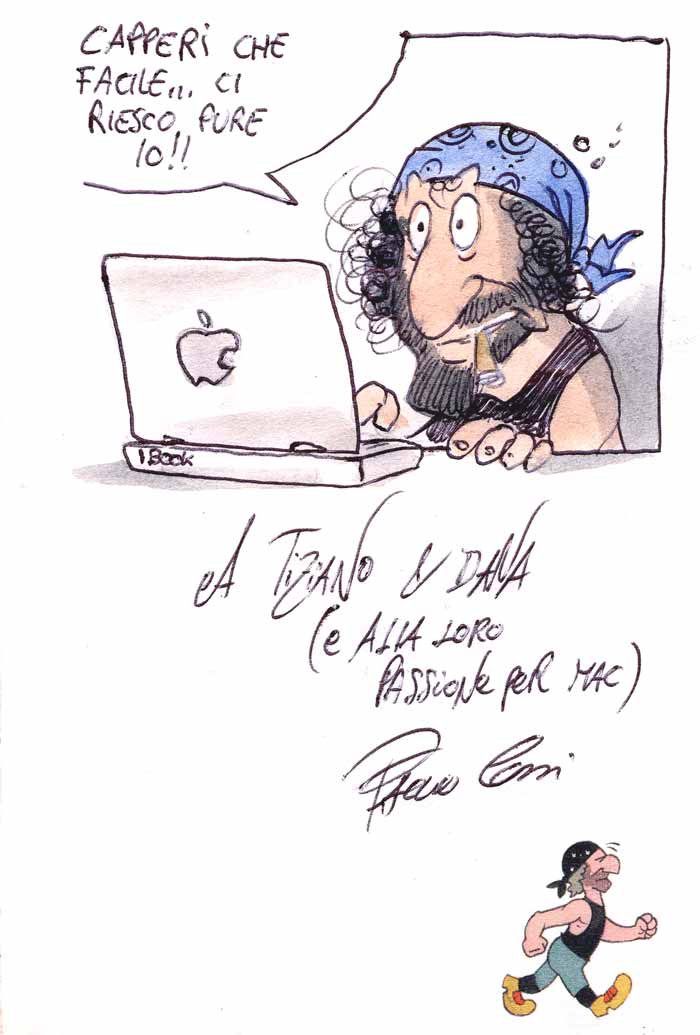 CAPPERI CHE
FACILE... CI
RIESCO PURE
IO!!
I BOOK
A TIZIANO & DANA
(e ALLA LORO
PASSIONE PER MAC)
Paolo Cossi